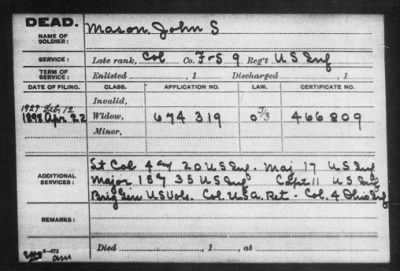 DEAD.
NAME OF SOLDIER:
Mason John S
SERVICE:
Late rank, Col Co. F-S 9 Reg't U S Inf
TERM OF SERVICE:
Enlisted , 1 Discharged , 1
DATE OF FILING. CLASS. APPLICATION NO. LAW. CERTIFICATE NO.
Invalid,
1927 Feb 12
1898 Apr 22 Widow, 674 319 466809
Minor,
ADDITIONAL SERVICES:
Lt Col 4 and 20 U S Inf. Maj 17 U S Inf
Major 15 35 U S Inf Capt 11 U S Inf
Brig Gen U S Vols. Col. U S A. Ret. Col. 4 Ohio Inf
REMARKS:
Died , 1 , at